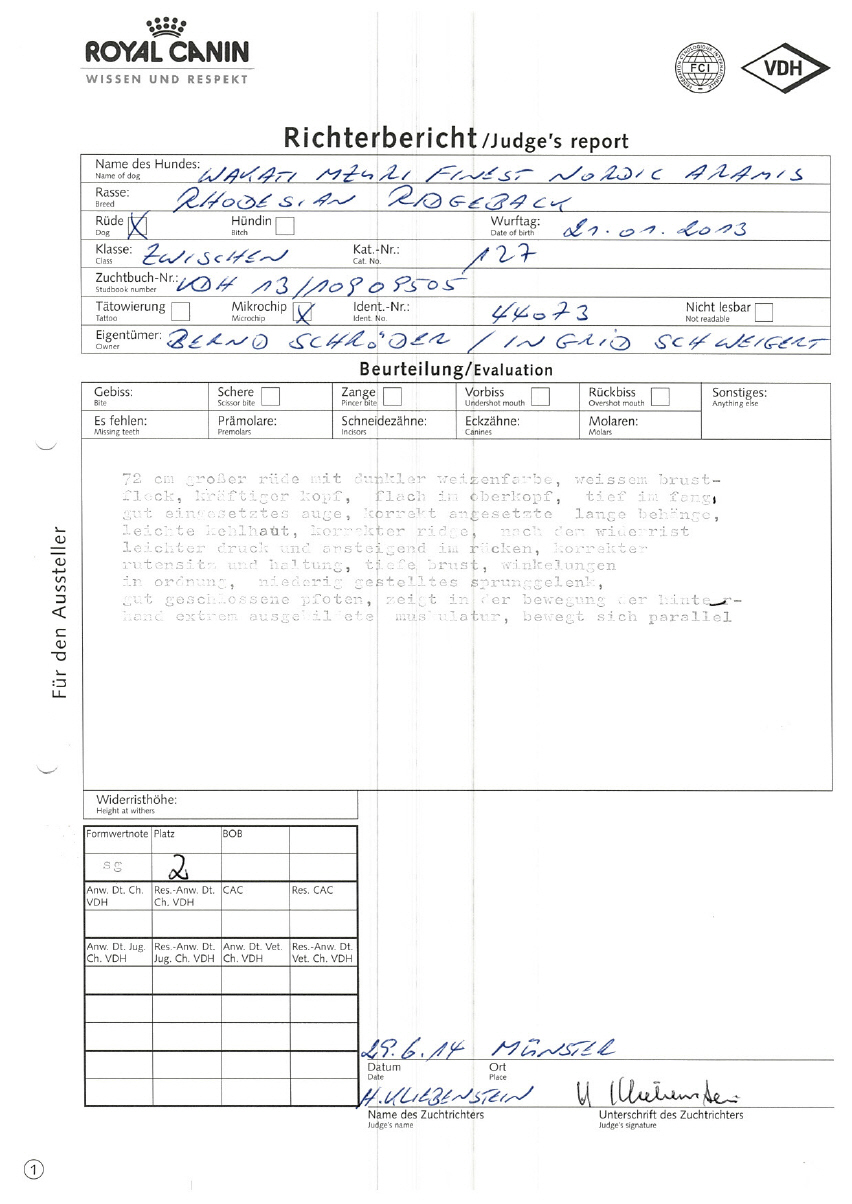 ROYAL CANIN
WISSEN UND RESPEKT
FCI
VDH
Richterbericht/Judge's report
Name des Hundes: WAKATI MZURI FINEST NORDIC ARAMIS
Name of dog
Rasse: RHODESIAN RIDGEBACK
Breed
Rüde X Hündin Wurftag: 21.01.2013
Dog Bitch Date of birth
Klasse: ZWISCHEN Kat.-Nr.: 127
Class Cat. No.
Zuchtbuch-Nr.: VDH 13/10909505
Studbook number
Tätowierung Mikrochip X Ident.-Nr.: 44073 Nicht lesbar
Tattoo Microchip Ident. No. Not readable
Eigentümer: BERND SCHRÖDER / INGRID SCHWEIGERT
Owner
Beurteilung/Evaluation
Gebiss: Schere Zange Vorbiss Rückbiss Sonstiges:
Bite Scissor bite Pincer bite Undershot mouth Overshot mouth Anything else
Es fehlen: Prämolare: Schneidezähne: Eckzähne: Molaren:
Missing teeth Premolars Incisors Canines Molars
72 cm großer rüde mit dunkler weizenfarbe, weissem brust-
fleck, kräftiger kopf, flach im oberkopf, tief im fang,
gut eingesetztes auge, korrekt angesetzte lange behänge,
leichte kehlhaut, korrekter ridge, nach dem widerrist
leichter druck und ansteigend im rücken, korrekter
rutensitz und haltung, tiefe brust, winkelungen
in ordnung, niederig gestelltes sprunggelenk,
gut geschlossene pfoten, zeigt in der bewegung der hinter-
hand extrem ausgebildete muskulatur, bewegt sich parallel
Für den Aussteller
Widerristhöhe:
Height at withers
Formwertnote Platz BOB
sg 2
Anw. Dt. Ch. Res.-Anw. Dt. CAC Res. CAC
VDH Ch. VDH
Anw. Dt. Jug. Res.-Anw. Dt. Anw. Dt. Vet. Res.-Anw. Dt.
Ch. VDH Jug. Ch. VDH Ch. VDH Vet. Ch. VDH
29.6.14 MÜNSTER
Datum Ort
Date Place
H. KLIEBENSTEIN
Name des Zuchtrichters Unterschrift des Zuchtrichters
Judge's name Judge's signature
1